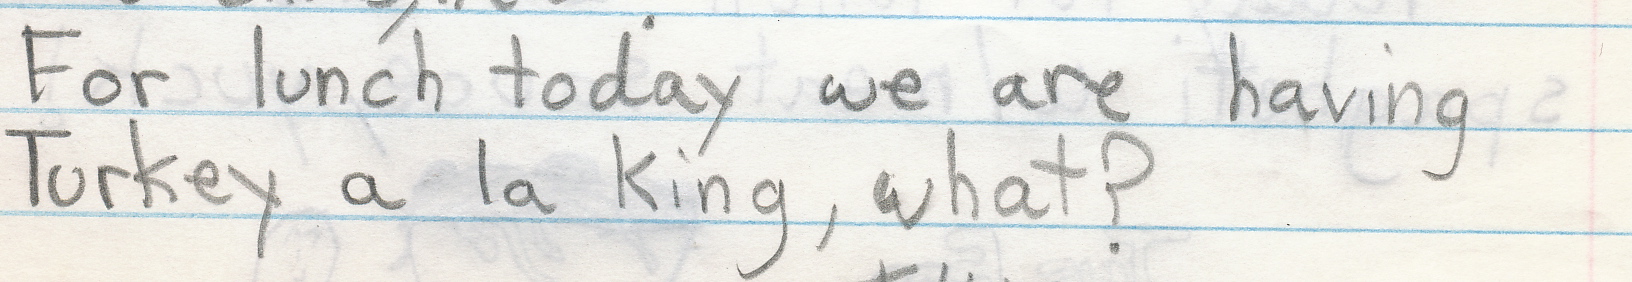 For lunch today we are having
Turkey a la King, what?